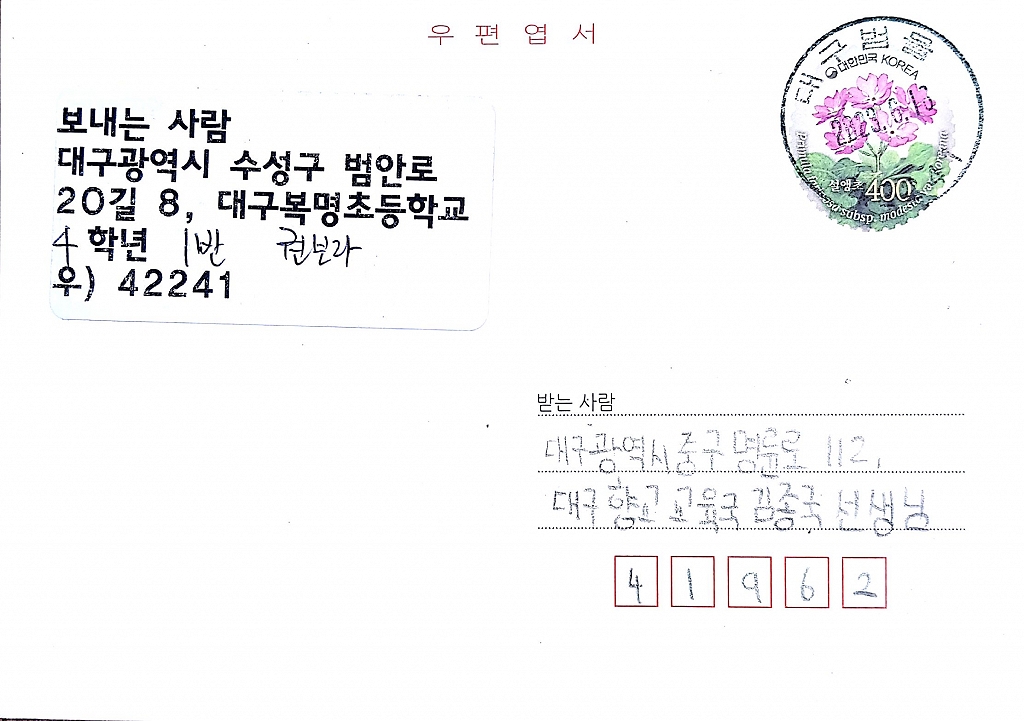 우편엽서
대구범물
대한민국 KOREA
2023.6.13
설앵초 400
보내는 사람
대구광역시 수성구 범안로
20길 8, 대구복명초등학교
4학년 1반 권보라
우) 42241
받는 사람
대구광역시 중구 명륜로 112,
대구향교 교육국 김종국 선생님
41962